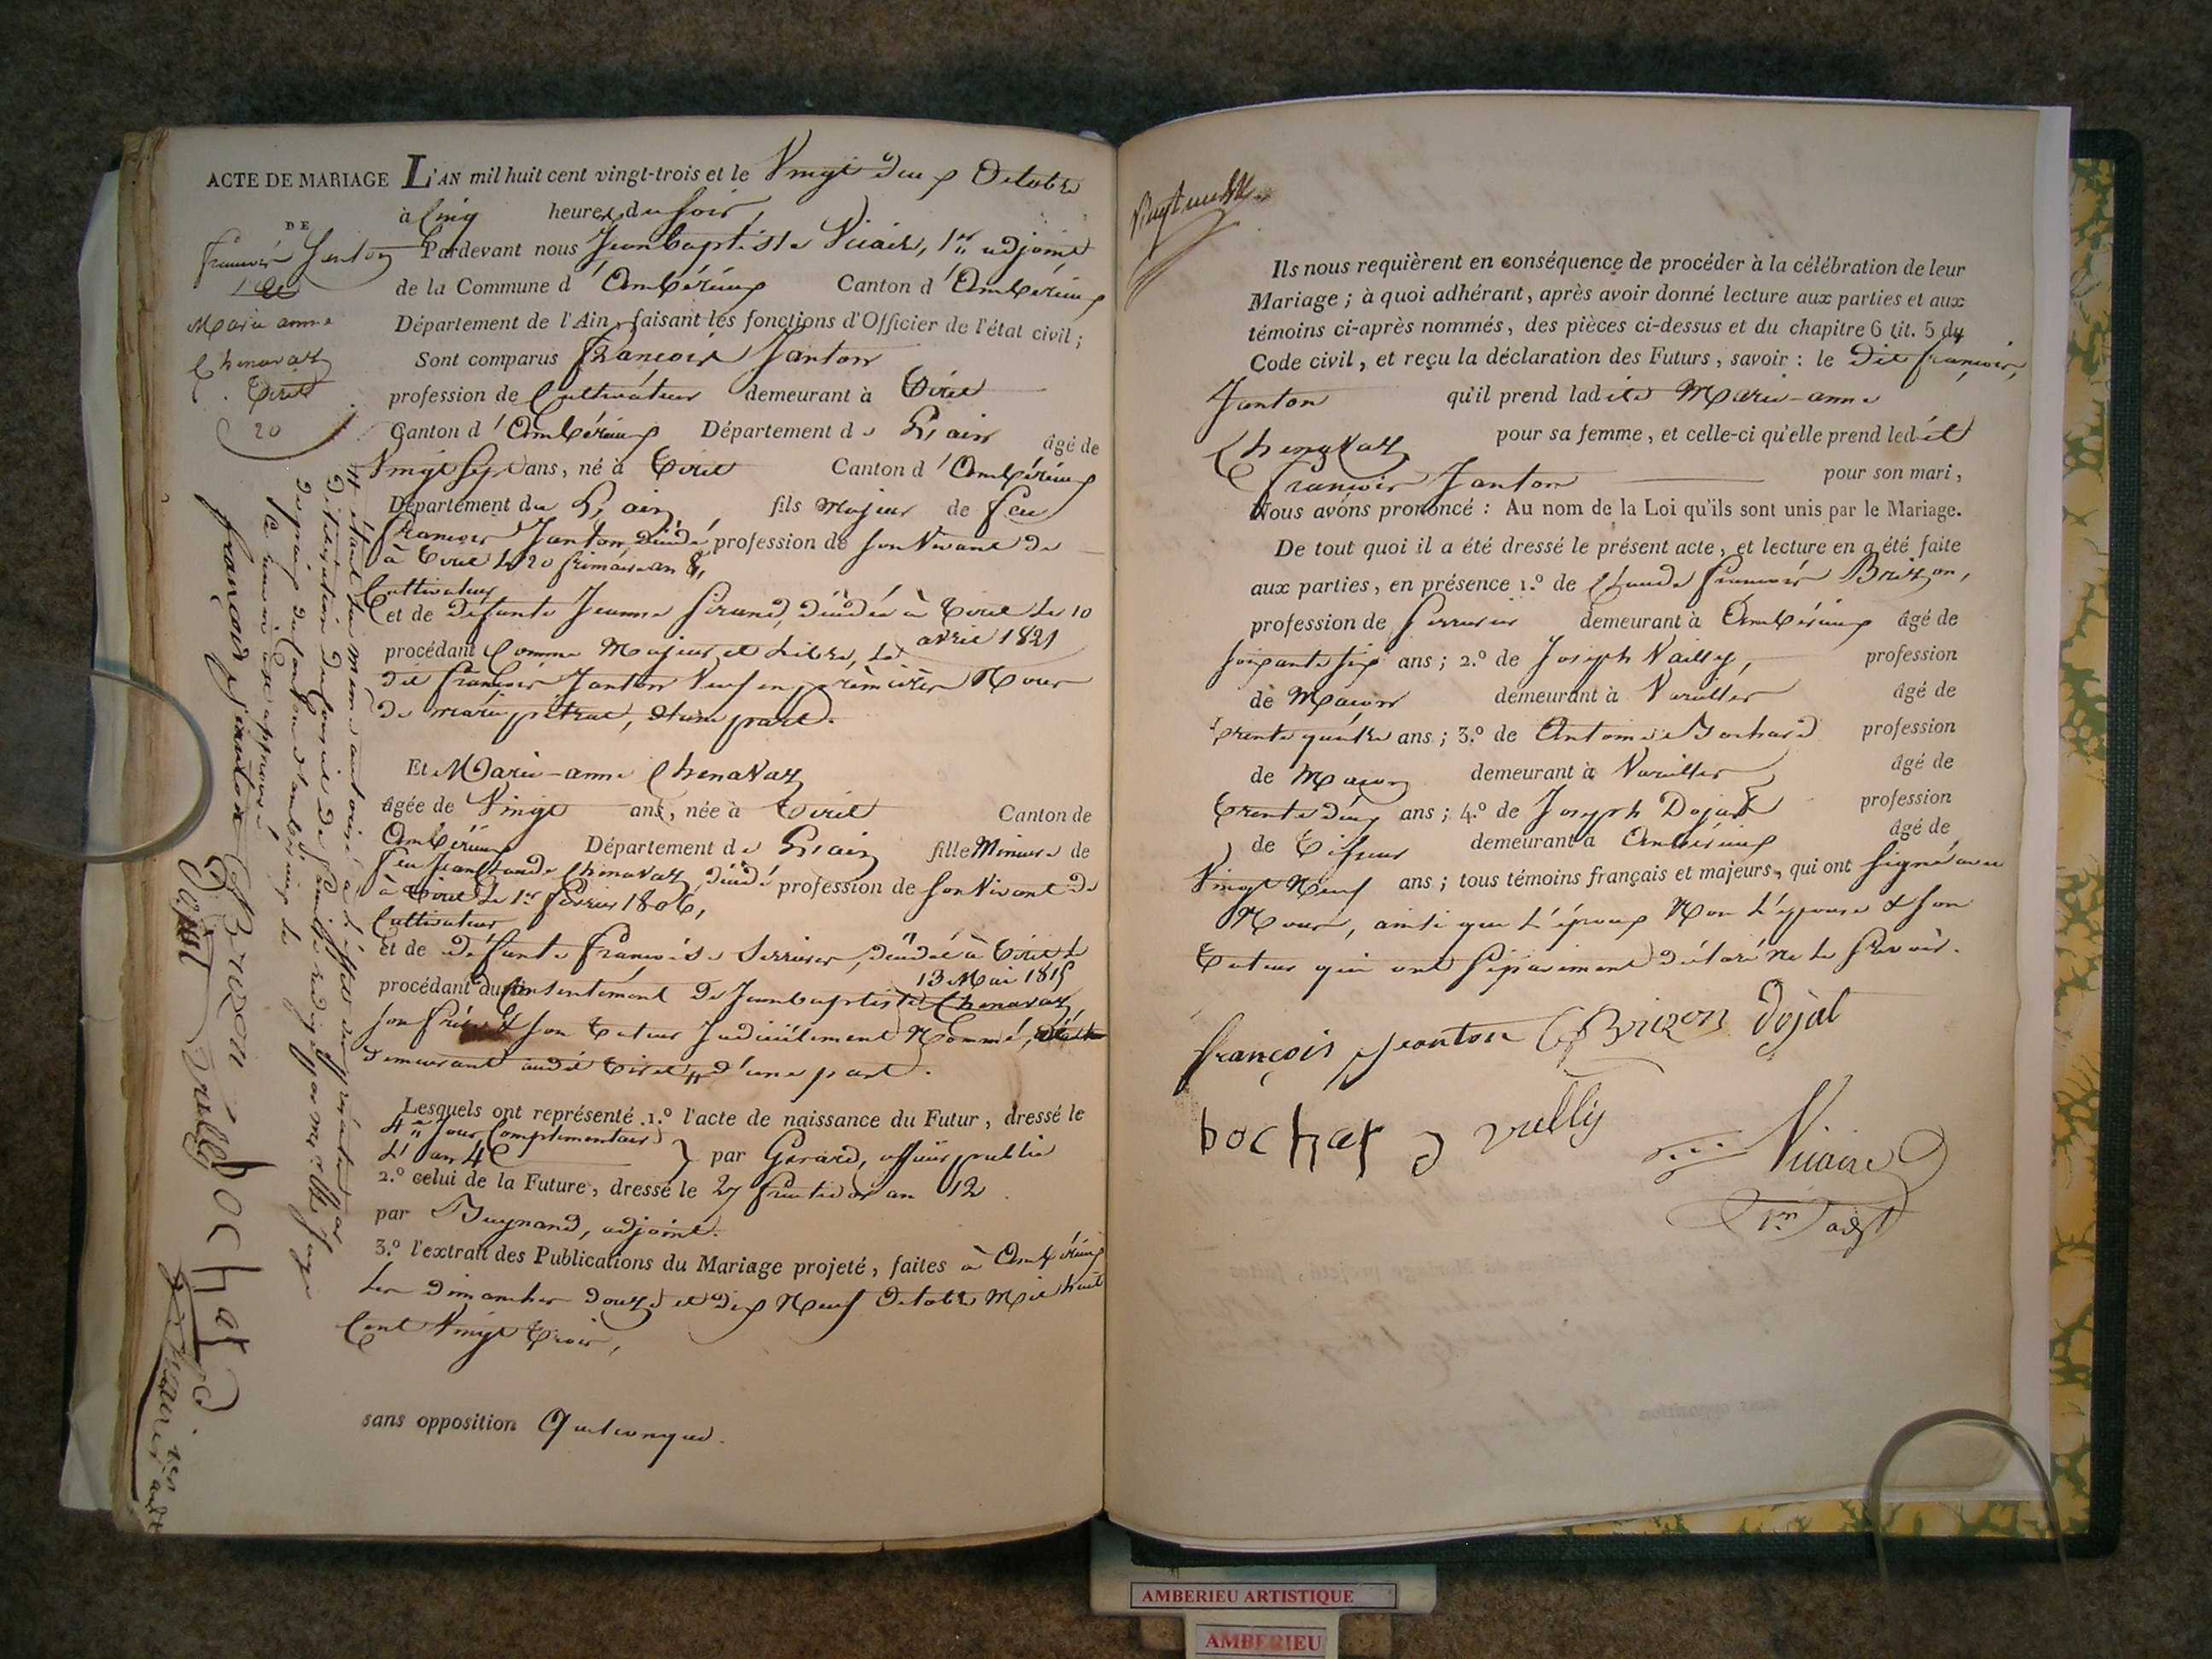 ACTE DE MARIAGE
DE
françois Janton
Marie anne
Chenavaz
Tiret
20
L'AN mil huit cent vingt-trois et le Vingt deux Octobre
à Cinq heures du soir,
Pardevant nous Jean baptiste Vicaire, 1er adjoint
de la Commune d'Ambérieux Canton d'Ambérieux
Département de l'Ain, faisant les fonctions d'Officier de l'état civil;
Sont comparus françois Janton
profession de Cultivateur demeurant à Tiret
Canton d'Ambérieux Département de L'ain âgé de
Vingt Sept ans, né à Tiret Canton d'Ambérieux
Département de L'ain fils Majeur de feu
françois Janton, décédé profession de son Vivant de
à Tiret le 20 frimaire an 8,
Cultivateur
et de défunte Jeanne, décédée à Tiret le 10
avril 1821
procédant Comme Majeur et Libre, Le
dit françois Janton Veuf en premières Noces
de marie, d'une part.
Et Marie-anne Chenavaz
âgée de Vingt ans, née à Tiret Canton de
Ambérieux Département de L'ain fille Mineure de
feu Jean Claude Chenavaz, décédé profession de son Vivant de
à Tiret le 1er février 1806,
Cultivateur
et de défunte françoise, décédée à Tiret le
13 Mai 1815
procédant du Consentement de Jean baptiste Chenavaz
son frère & son Tuteur Judiciellement Nommé,
demeurant audit Tiret # d'une part.
Lesquels ont représenté 1.º l'acte de naissance du Futur, dressé le
4e Jour Complémentaire
L'an 4 par Gérard, officier public
2.º celui de la Future, dressé le 27 fructidor an 12
par Buynand, adjoint.
3.º l'extrait des Publications du Mariage projeté, faites à Ambérieux
Les dimanches douze et dix Neuf Octobre Mil huit
Cent Vingt Trois,
sans opposition Quelconque.
# étant lui même autorisé à l'effet du présent par
délibération du Conseil de famille rédigée par Mr le Juge
de paix du Canton d'ambérieux le
françois jeanton CF Brizon bochard
Dojat vully
Vicaire 1er adjt
Ils nous requièrent en conséquence de procéder à la célébration de leur
Mariage; à quoi adhérant, après avoir donné lecture aux parties et aux
témoins ci-après nommés, des pièces ci-dessus et du chapitre 6 tit. 5 du
Code civil, et reçu la déclaration des Futurs, savoir: le dit françois,
Janton qu'il prend ladite Marie-anne
Chenavaz pour sa femme, et celle-ci qu'elle prend ledit
françois Janton pour son mari,
Nous avons prononcé: Au nom de la Loi qu'ils sont unis par le Mariage.
De tout quoi il a été dressé le présent acte, et lecture en a été faite
aux parties, en présence 1.º de Claude françois Brizon,
profession de Serrurier demeurant à Ambérieux âgé de
soixante six ans; 2.º de Joseph Vailly, profession
de Maçon demeurant à Vareilles âgé de
trente quatre ans; 3.º de Antoine Bochard profession
de Maçon demeurant à Vareilles âgé de
trente deux ans; 4.º de Joseph Dojat profession
de Tisseur demeurant à Ambérieux âgé de
Vingt Neuf ans; tous témoins français et majeurs, qui ont signé avec
Nous, ainsi que L'époux Non L'épouse & son
Tuteur qui ont séparément déclaré ne le savoir.
françois jeanton CF Brizon dojat
bochard vully
Vicaire
1er adjt
AMBERIEU ARTISTIQUE
AMBERIEU